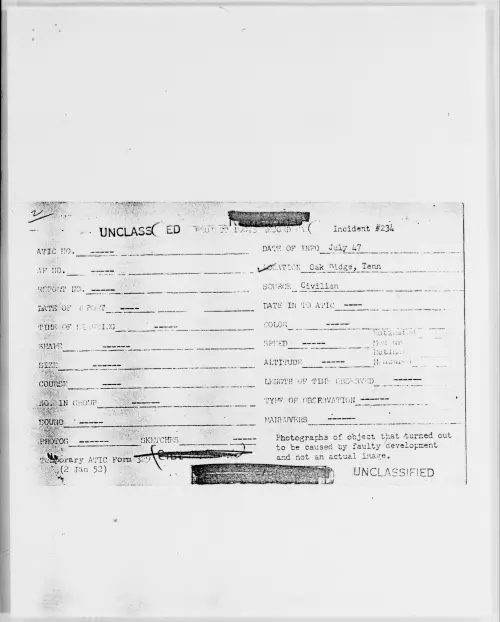 2
UNCLASS ED Incident #234
ATIC NO. ----- DATE OF INFO July 47
AF NO. ----- LOCATION Oak Ridge, Tenn
REPORT NO. ----- SOURCE Civilian
DATE OF REPORT ----- DATE IN TO ATIC ----
TIME OF SIGHTING ----- COLOR -----
SHAPE ------ SPEED -----
SIZE ------ ALTITUDE -----
COURSE ---- LENGTH OF TIME OBSERVED ------
NO. IN GROUP ------ TYPE OF OBSERVATION ------
SOUND ------ MANEUVERS ------
PHOTOS ------ SKETCHES -----
Photographs of object that turned out
to be caused by faulty development
and not an actual image.
Temporary ATIC Form 329
(2 Jan 52)
UNCLASSIFIED